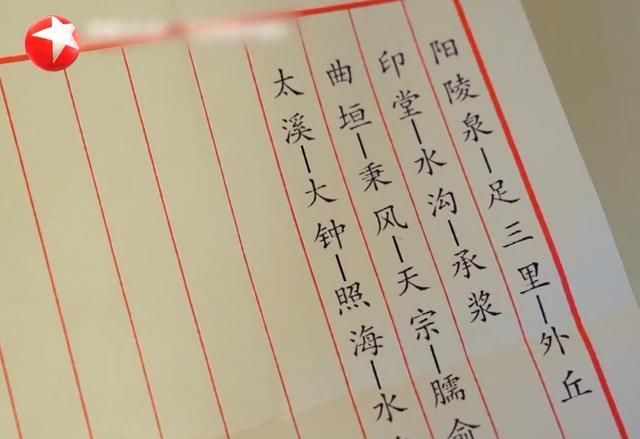 阳陵泉—足三里—外丘
印堂—水沟—承浆
曲垣—秉风—天宗—臑俞
太溪—大钟—照海—水